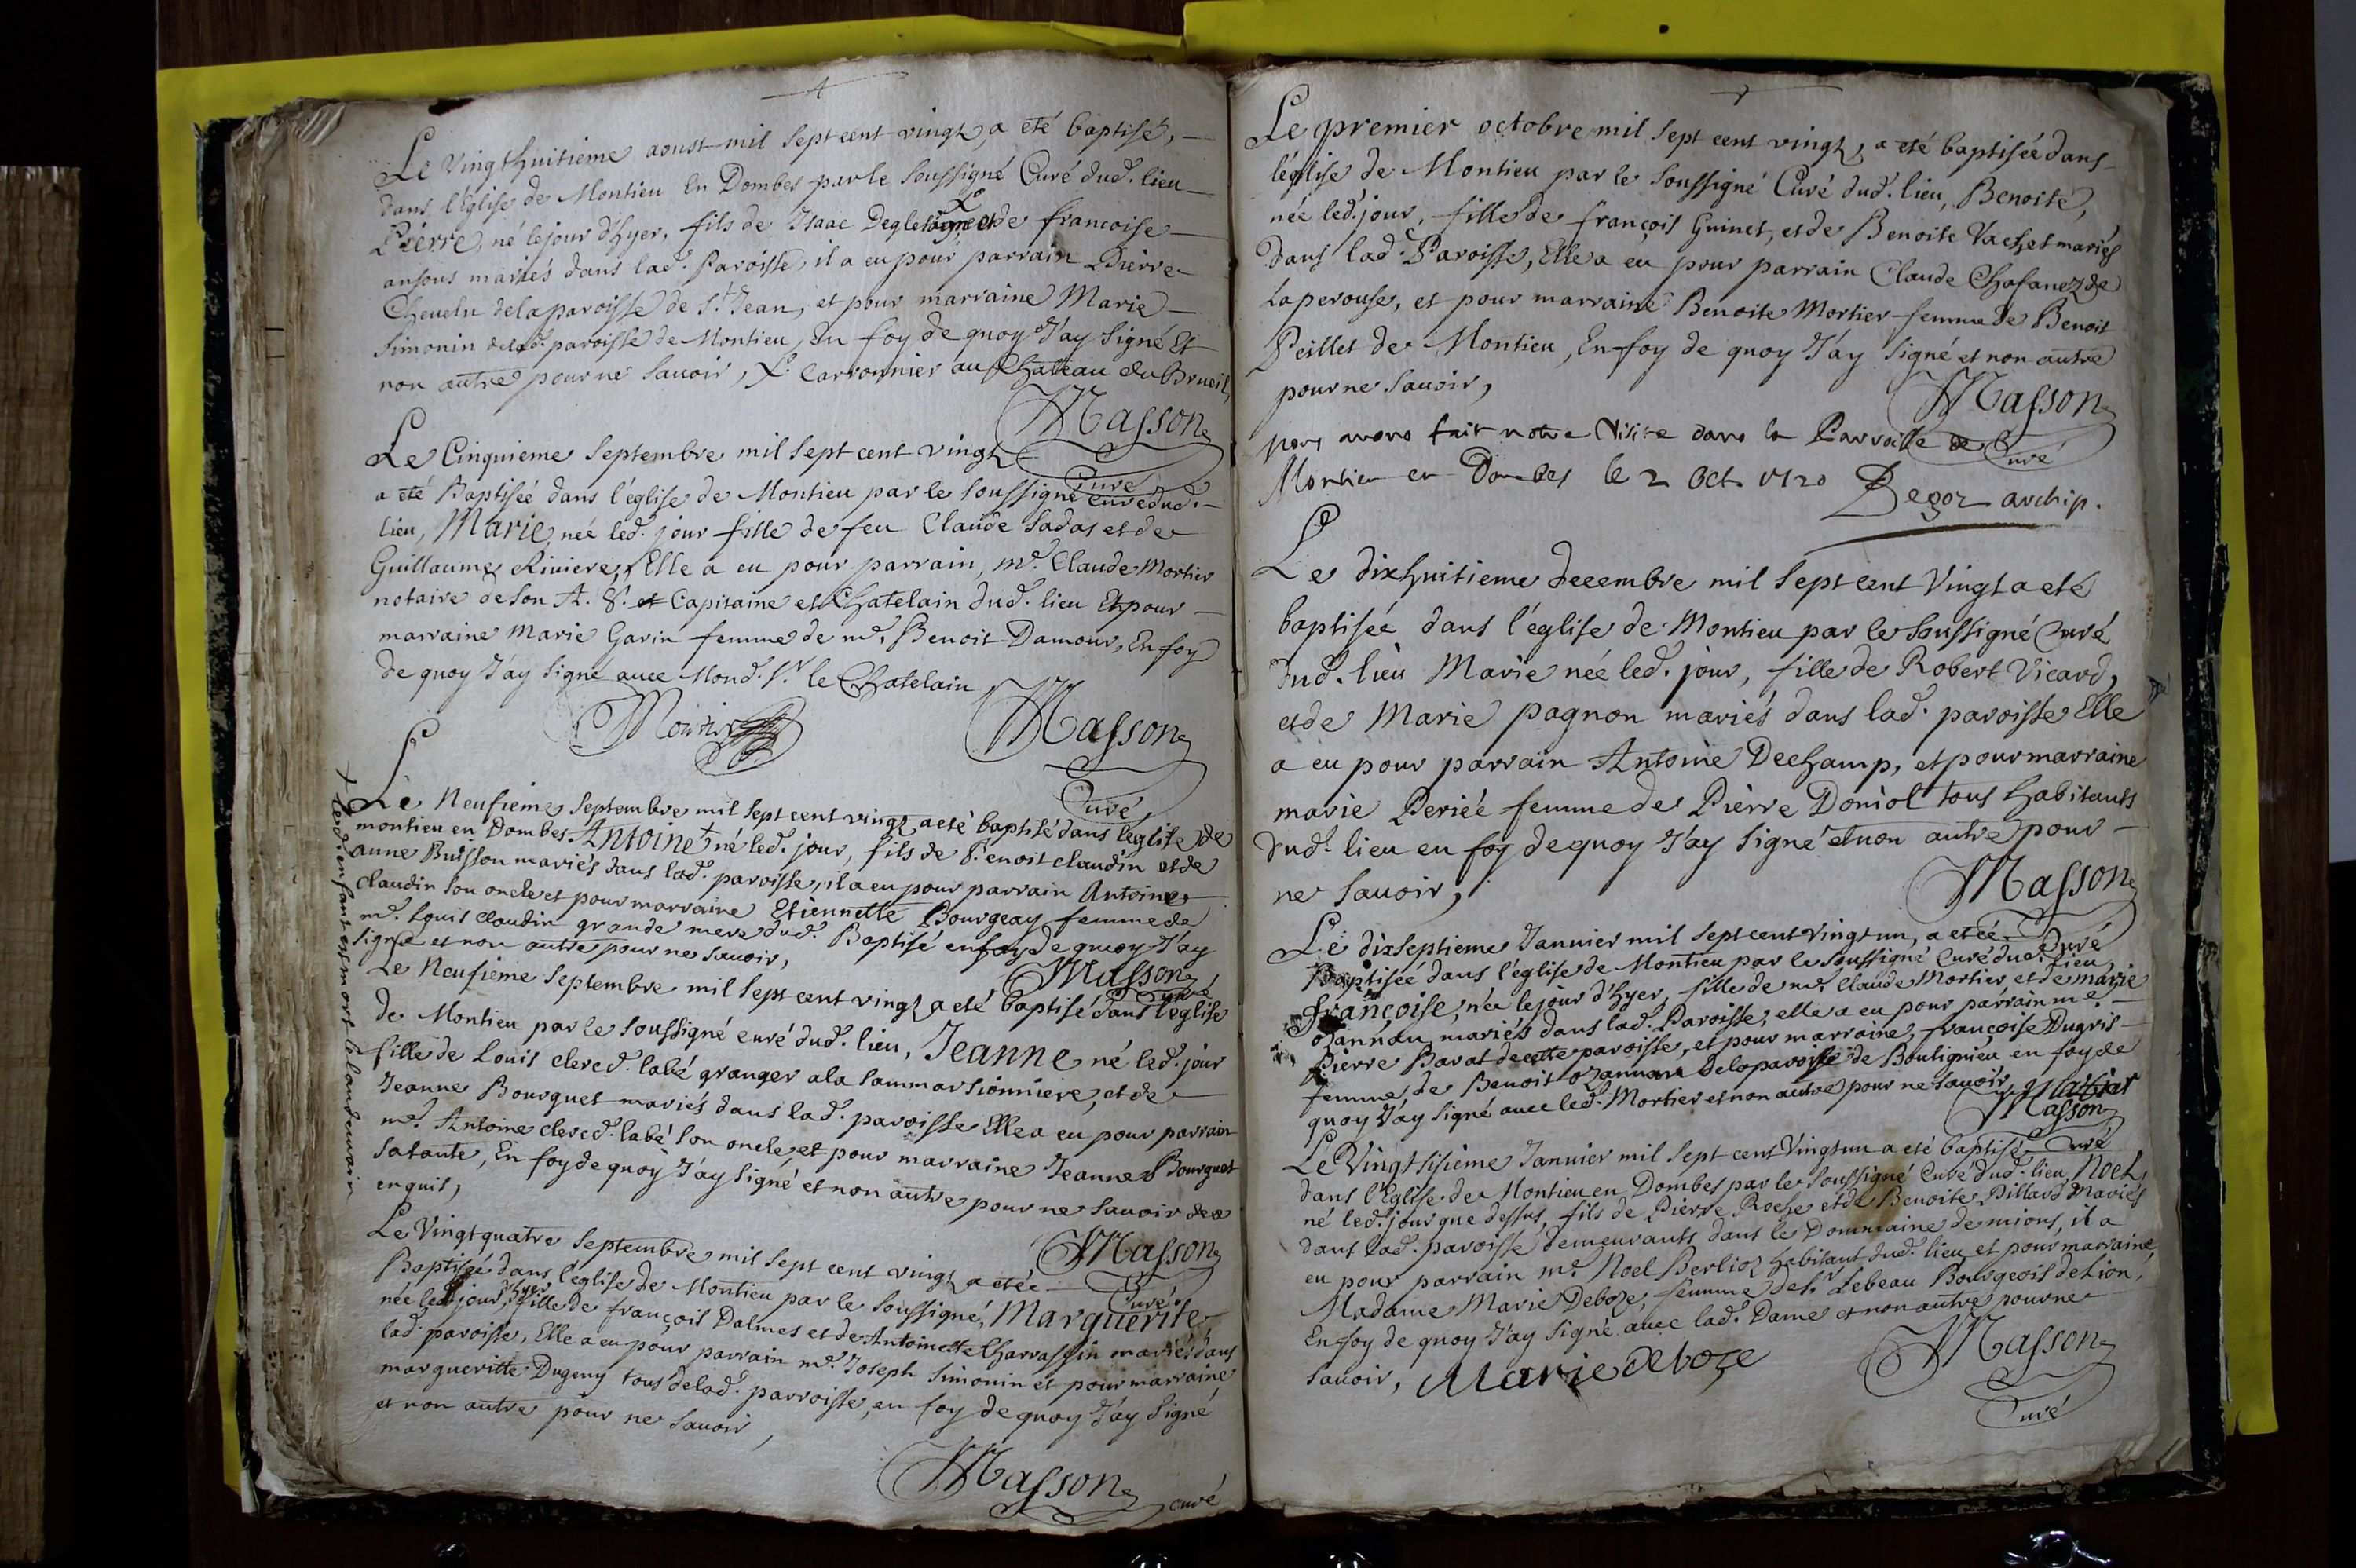 Le Vingthuitieme aoust mil sept cent vingt, a eté baptisé,
dans l'Eglise de Montieu En Dombes par le soussigné Curé dud. lieu
Pierre, né le jour d'hyer, fils de Isaac et de francoise
ansous mariés dans lad. Paroisse, il a eu pour parrain Pierre
Chevelu de la paroisse de St. Jean, et pour marraine Marie
Simonin de lad. paroisse de Montieu, En foy de quoy J'ay signé Et
non autre pour ne savoir, X. Carronnier au Chateau du Brueil,
Masson
Curé
Le Cinquieme Septembre mil sept cent vingt
a eté Baptisée dans l'église de Montieu par le soussigné Curé dud.
lieu, Marie, née led. jour fille de feu Claude Sadas et de
Guillaume Riviere, Elle a eu pour parrain, me. Claude Mortier
notaire de son A. S. et Capitaine et Chatelain dud. lieu Et pour
marraine Marie Gavin femme de me. Benoit Damour, En foy
de quoy J'ay signé avec Mond. Sr. le Chatelain
Mortier
Masson
Curé
Le Neufieme Septembre mil sept cent vingt a eté baptisé dans l'eglise de
montieu en Dombes. Antoine + né led. jour, fils de Benoit claudin et de
anne Buisson mariés dans lad. paroisse, il a eu pour parrain Antoine
Claudin son oncle et pour marraine Etiennette Bourgeay femme de
me. Louis Claudin grande mere dud. Baptisé en foy de quoy J'ay
signé et non autre pour ne savoir,
Masson
Curé
+ led. enfant est mort le landemain
Le Neufieme Septembre mil sept cent vingt a eté baptisé dans l'eglise
de Montieu par le soussigné curé dud. lieu, Jeanne né led. jour
fille de Louis clerc d. labé granger a la Sammarsionniere, et de
Jeanne Bourguet mariés dans lad. paroisse Elle a eu pour parrain
me. Antoine clerc d. labé son oncle, et pour marraine Jeanne Bourguet
sa tante, En foy de quoy J'ay signé et non autre pour ne savoir de ce
enquis,
Masson
Curé
Le Vingtquatre Septembre mil sept cent vingt a etée
Baptisée dans l'eglise de Montieu par le soussigné, Marguerite
née le jour d'hyer, fille de françois Dalmes et de Antoinette Charrassin mariés dans
lad. paroisse, Elle a eu pour parrain me. Joseph Simonin et pour marraine
marguerite Dugeny tous de lad. parroisse, en foy de quoy J'ay signé
et non autre pour ne savoir,
Masson curé
Le premier octobre mil sept cent vingt, a eté baptisée dans
l'église de Montieu par le soussigné Curé dud. lieu, Benoite,
née led. jour, fille de françois Guinet, et de Benoite Vachet mariés
dans lad. Paroisse, Elle a eu pour parrain Claude Chafanez de
Laperouse, et pour marraine Benoite Mortier femme de Benoit
Peillet de Montieu, En foy de quoy J'ay signé et non autre
pour ne savoir,
Masson
Curé
nous avons fait notre Visite dans la Parroisse de
Montieu en Dombes le 2 Oct. 1720 Degoz archip.
Le dixhuitieme decembre mil sept cent Vingt a eté
baptisée dans l'église de Montieu par le soussigné Curé
dud. lieu Marie née led. jour, fille de Robert Vicard,
et de Marie pagnon mariés dans lad. paroisse Elle
a eu pour parrain Antoine Dechamp, et pour marraine
marie Periée femme de Pierre Doriol tous habitants
dud. lieu en foy de quoy J'ay signé et non autre pour
ne savoir,
Masson
Curé
Le dixseptieme Janvier mil sept cent vingt un, a etée
Baptisée dans l'église de Montieu par le soussigné Curé dud. lieu
françoise, née le jour d'hyer, fille de me. Claude Mortier, et de marie
ozannan mariés dans lad. Paroisse, elle a eu pour parrain me.
Pierre Barat de cette paroisse, et pour marraine, françoise Dugris
femme de Benoit ozannan de la paroisse de Bouligneu en foy de
quoy J'ay signé avec led. Mortier et non autre pour ne savoir,
Masson
Curé
Le Vingtsisieme Janvier mil sept cent Vingt un a eté baptisé
dans l'Eglise de Montieu en Dombes par le soussigné Curé dud. lieu, Noel,
né led. jour que dessus, fils de Pierre Roche et de Benoite Pillard Mariés
dans lad. paroisse demeurants dans le Dommaine de mions, il a
eu pour parrain me. Noel Berlioz habitant dud. lieu et pour marraine,
Madame Marie Deboze, femme de Sr. Lebeau Bourgeois de Lion,
En foy de quoy J'ay signé avec lad. Dame et non autre pour ne
savoir, Marie deboze
Masson
Curé